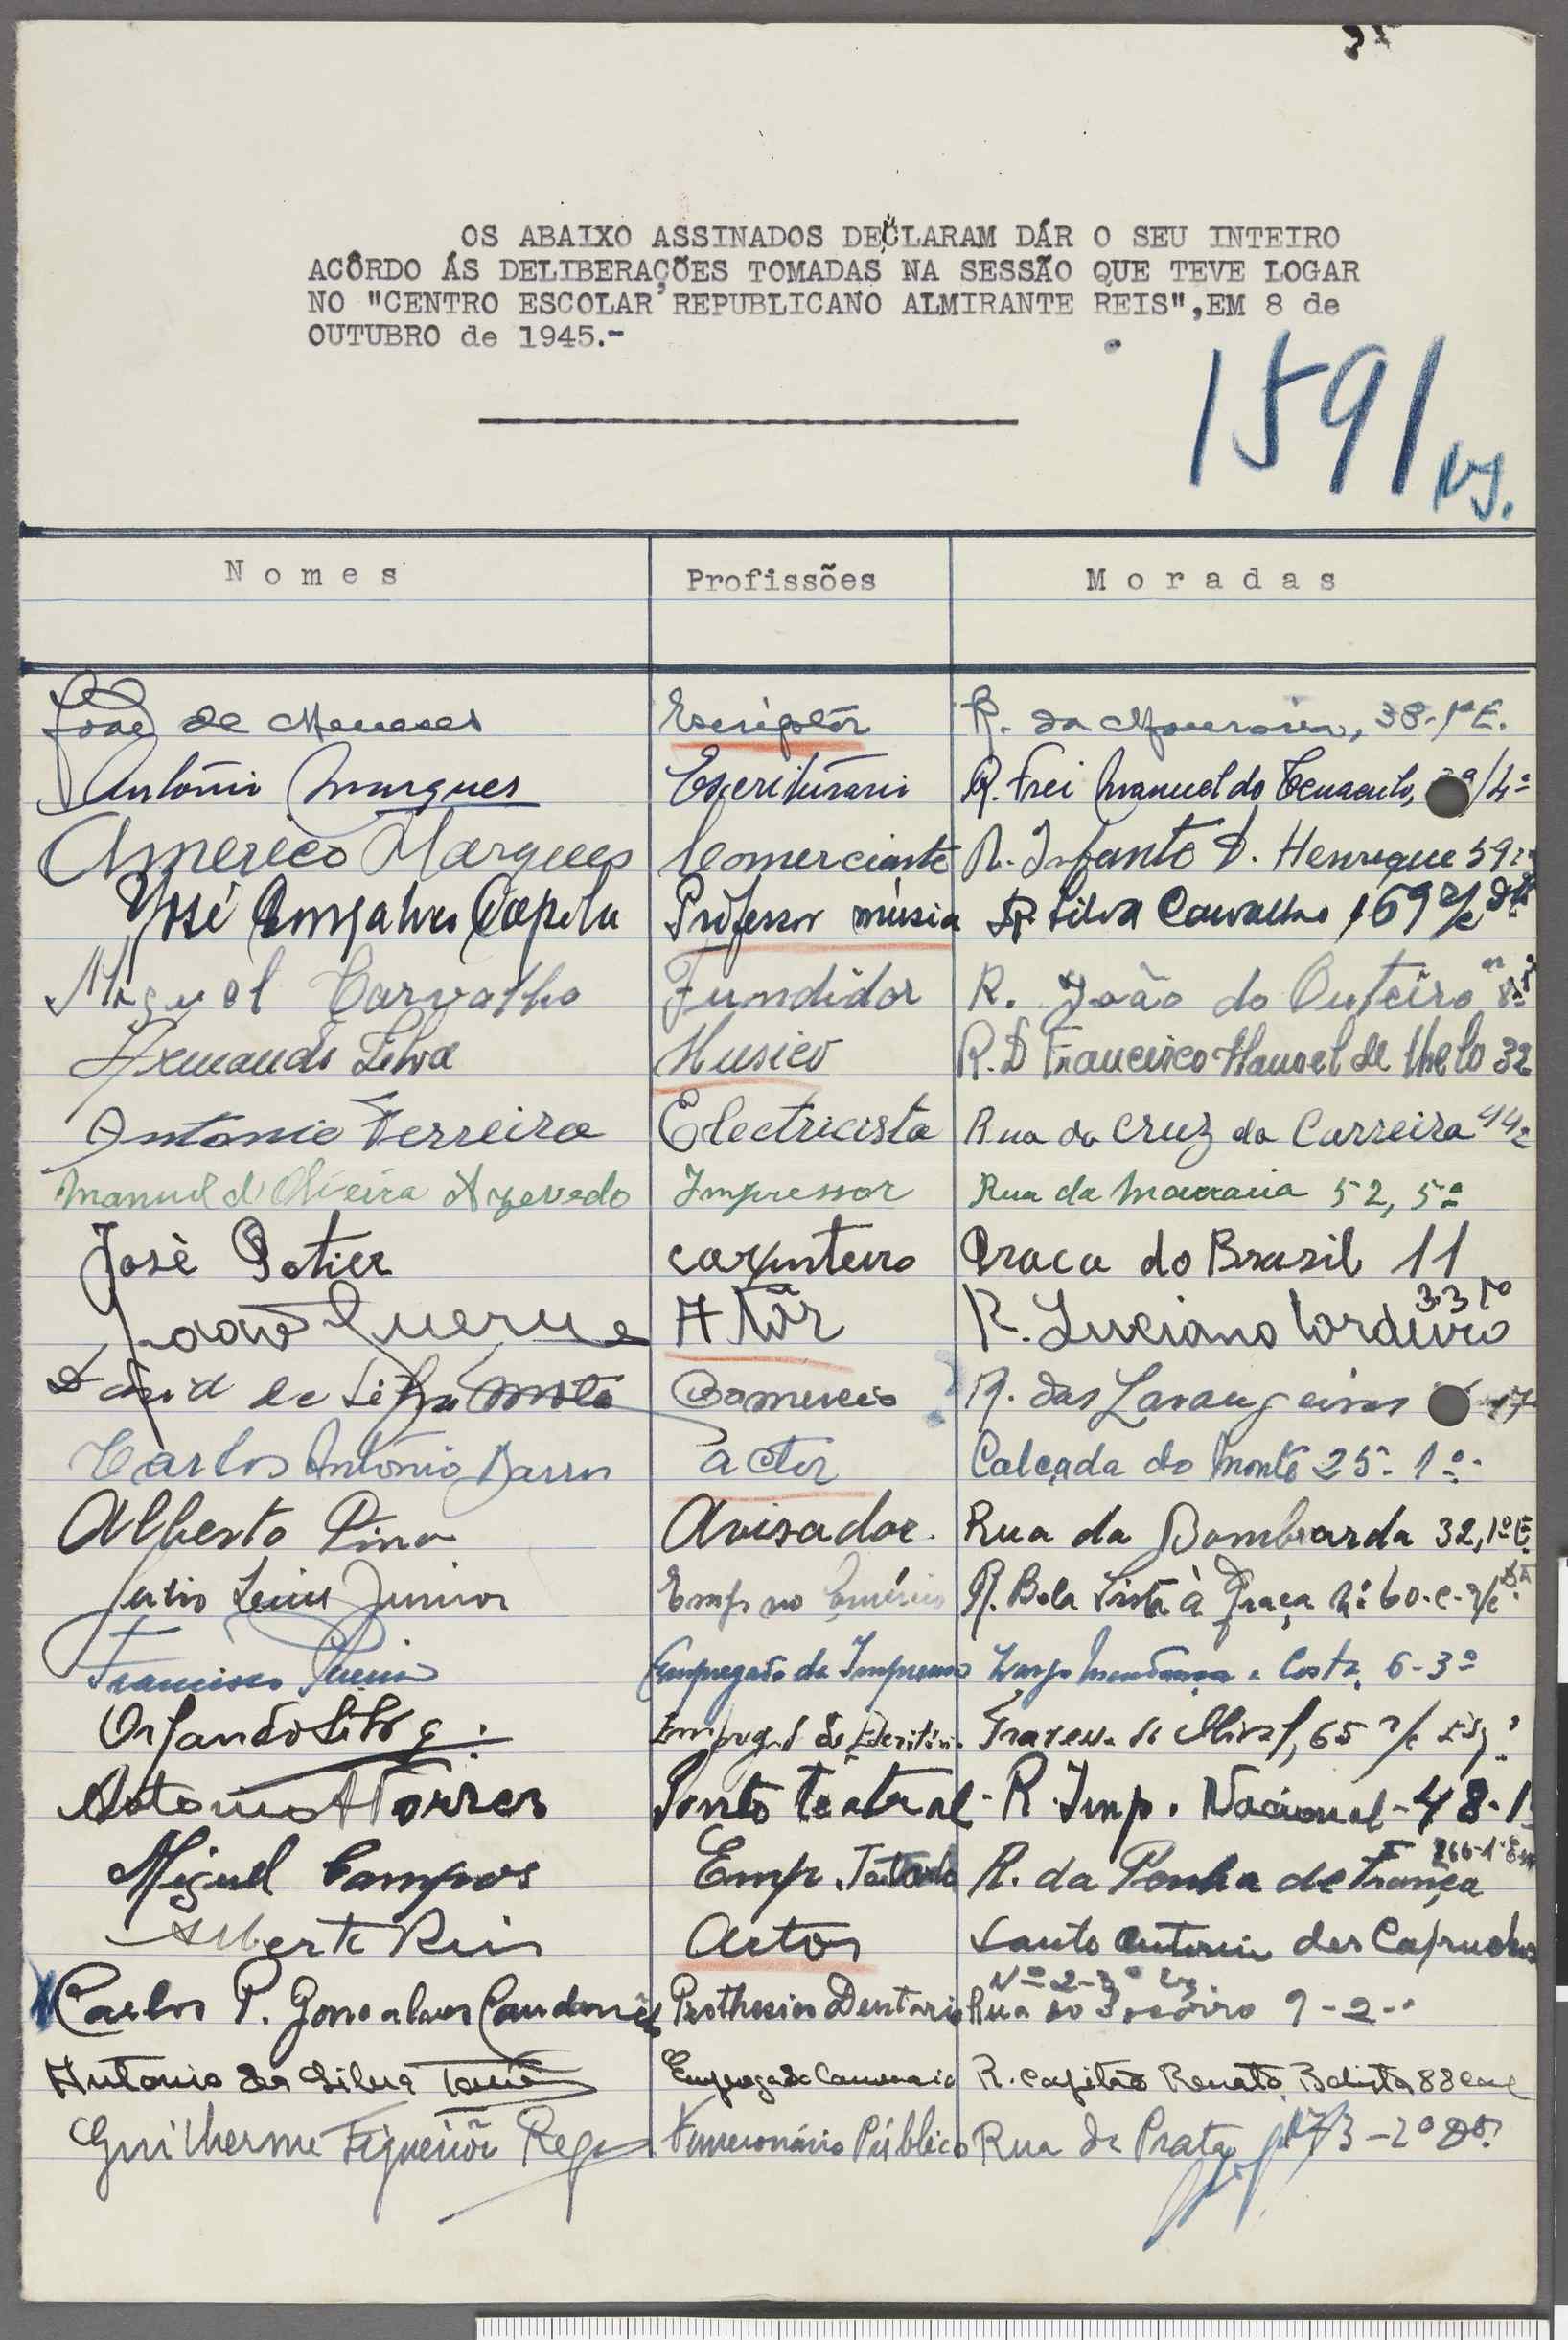 OS ABAIXO ASSINADOS DECLARAM DÁR O SEU INTEIRO
ACÔRDO ÁS DELIBERAÇÕES TOMADAS NA SESSÃO QUE TEVE LOGAR
NO "CENTRO ESCOLAR REPUBLICANO ALMIRANTE REIS",EM 8 de
OUTUBRO de 1945.-
1591
Nomes Profissões Moradas
João de Meneses Escriptôr R. da Mouraria, 38-1º E.
António Marques Escriturário R. Frei Manuel do Cenaculo, /4º
Americo Marques Comerciante R. Infanto D. Henrique 59
José Gonçalves Capela Professor música R. Silva Carvalho 169 r/c Dtº
Miguel Carvalho Fundidor R. João do Outeiro
Armando Silva Musico R. D Francisco Manoel de Melo 32
Antonio Ferreira Electricista Rua da Cruz da Carreira
Manuel d'Oliveira Azevedo Impressor Rua da Mouraria 52, 5º
José Potier carpinteiro Praca do Brasil 11
João Guerra Atôr R. Luciano Cordeiro 33 1º
David da Silva Mota Comercio R. das Larangeiras 17
Carlos António Barros actor Calçada do Monte 25-1º-
Alberto Pina Avisador. Rua da Bombarda 32, 1º E.
Julio Junior Emp. no Comércio R. Bela Vista à Graça Nº 60-c-r/c
Francisco Empregado da Imprensa Largo Mendonça e Costa, 6-3º
Orlando Silva. Empregd de Escritório 65 r/c Esqº
Antonio A Torres Ponto Teatral - R. Imp. Nacional - 48-1º
Miguel Campos Emp. R. da Penha de França 266-1º
Alberto Reis Actor Santo Antonio dos Capuchos
Nº 2-3º
Carlos P. Gonsalves Prothesico Dentario Rua do Socorro 9-2-º
Antonio da Silva Empregado Comercio R. Capitão Renato Batista 88
Guilherme Figueirôa Rego Funcionário Público Rua da Prata 173-2º Dº